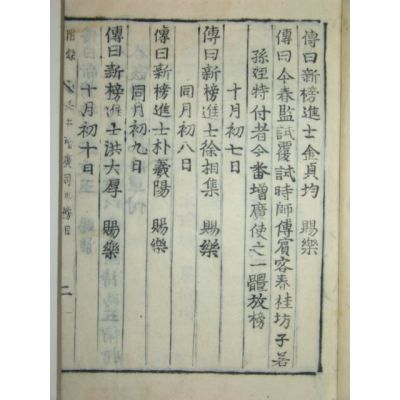 傳曰新榜進士金貞均　賜樂
傳曰今春監試覆試時師傅賓客春桂坊子若
孫姪特付者今番增廣使之一體放榜
十月初七日
傳曰新榜進士徐相集　賜樂
同月初八日
傳曰新榜進士朴羲陽　賜樂
同月初九日
傳曰新榜進士洪大厚　賜樂
十月初十日
附錄
二